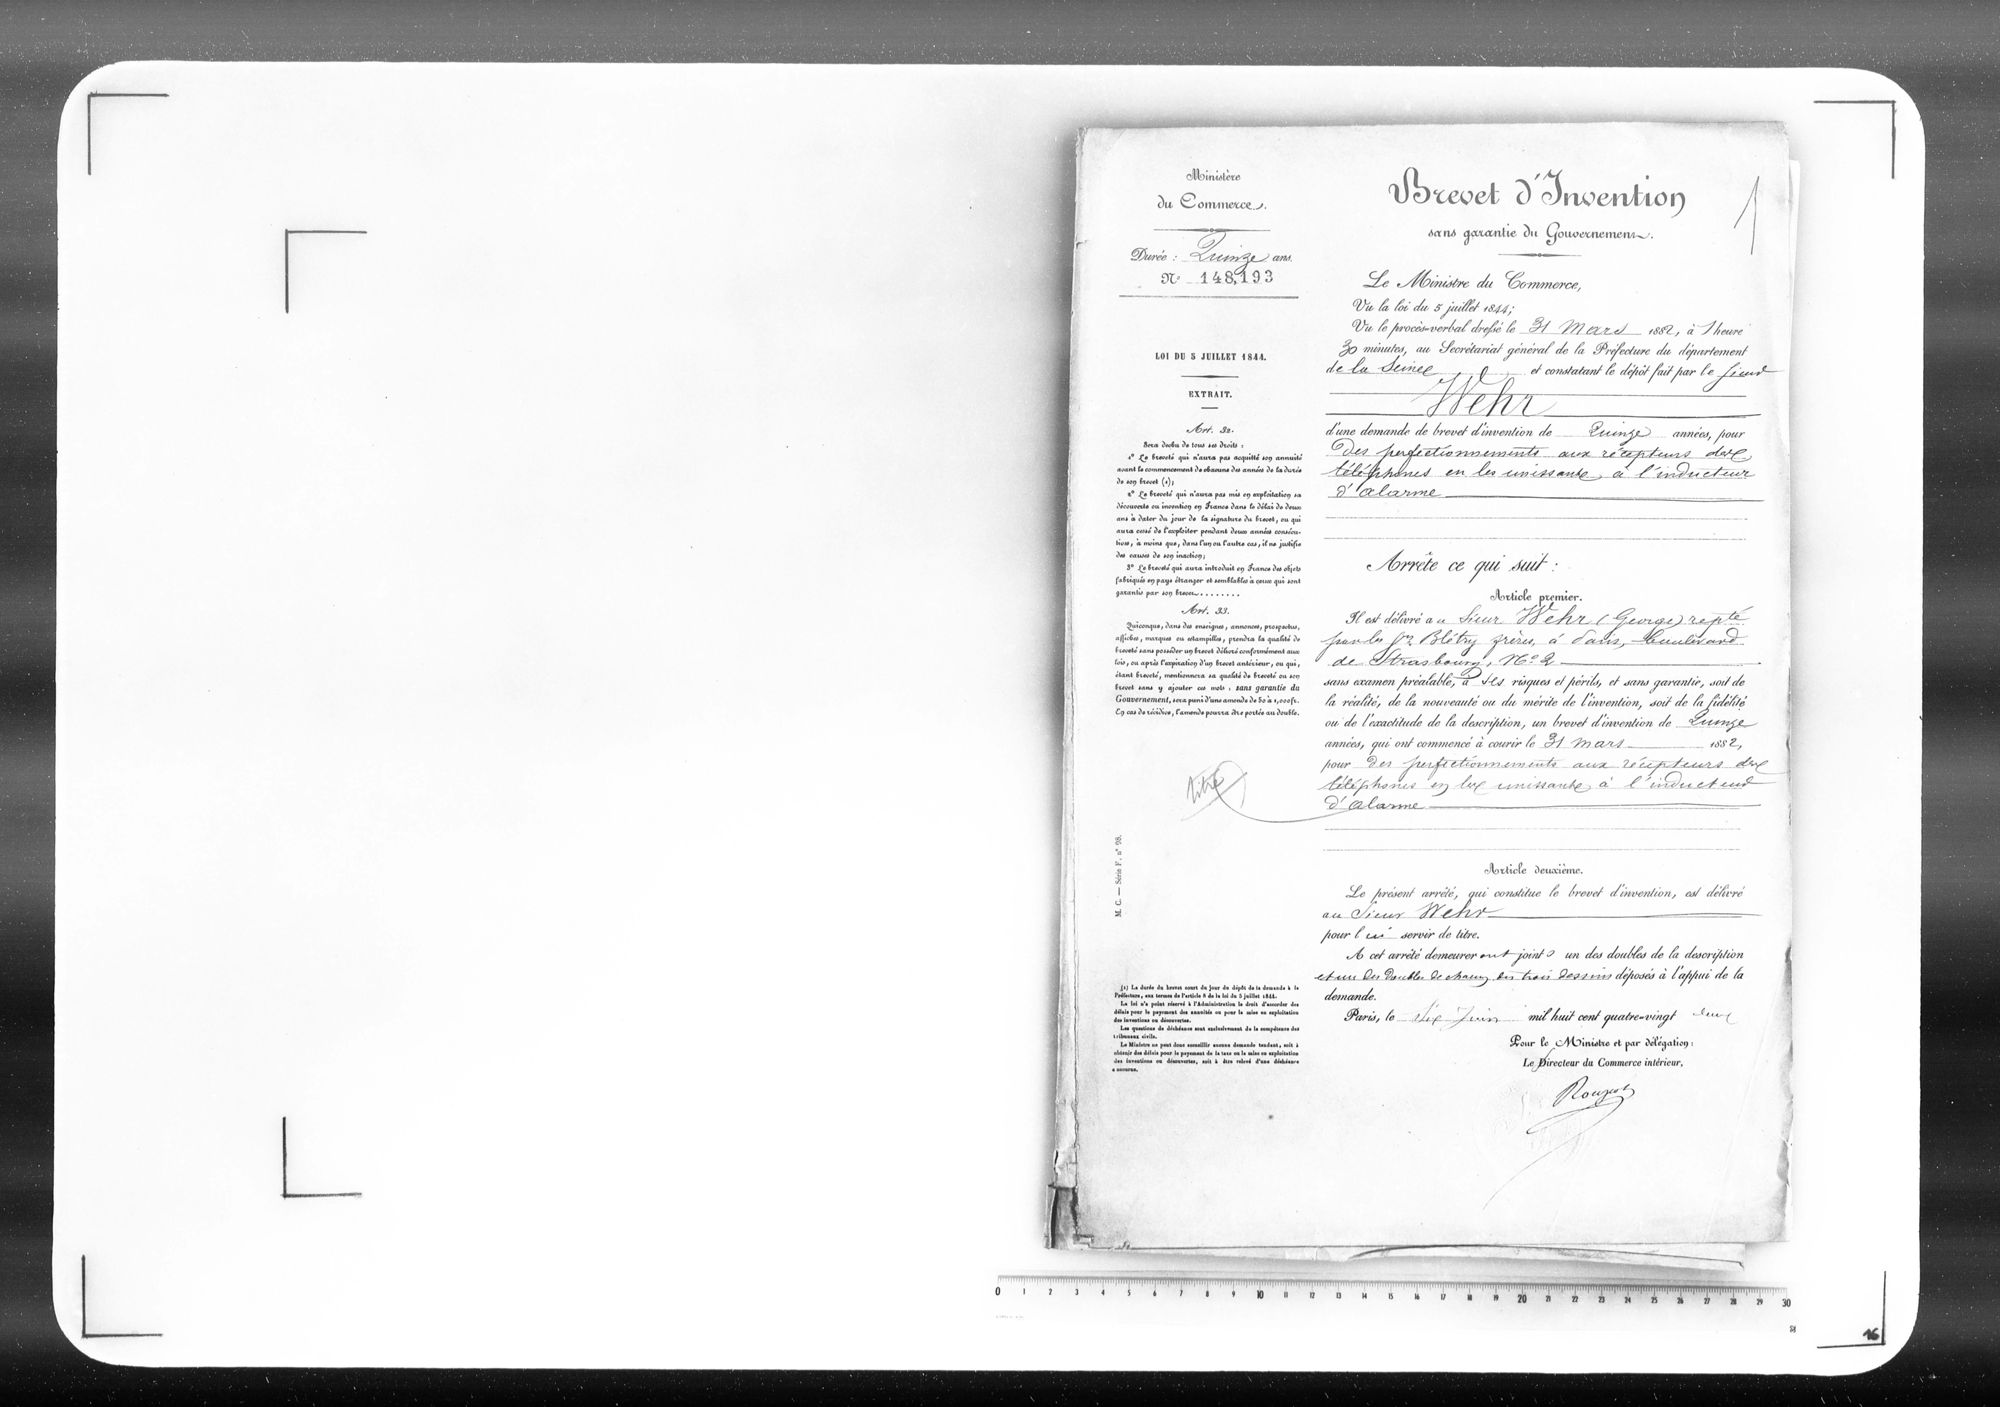 Ministère
du Commerce.
Durée : Quinze ans.
N° 148,193
LOI DU 5 JUILLET 1844.
EXTRAIT.
Art. 32.
Sera déchu de tous ses droits :
1° Le breveté qui n'aura pas acquitté son annuité
avant le commencement de chacune des années de la durée
de son brevet (1);
2° Le breveté qui n'aura pas mis en exploitation sa
découverte ou invention en France dans le délai de deux
ans à dater du jour de la signature du brevet, ou qui
aura cessé de l'exploiter pendant deux années consécu-
tives, à moins que, dans l'un ou l'autre cas, il ne justifie
des causes de son inaction;
3° Le breveté qui aura introduit en France des objets
fabriqués en pays étranger et semblables à ceux qui sont
garantis par son brevet........
Art. 33.
Quiconque, dans des enseignes, annonces, prospectus,
affiches, marques ou estampilles, prendra la qualité de
breveté sans posséder un brevet délivré conformément aux
lois, ou après l'expiration d'un brevet antérieur, ou qui,
étant breveté, mentionnera sa qualité de breveté ou son
brevet sans y ajouter ces mots : sans garantie du
Gouvernement, sera puni d'une amende de 50 à 1,000 fr.
En cas de récidive, l'amende pourra être portée au double.
titre
M. C. — Série F. n° 98.
(1) La durée du brevet court du jour du dépôt de la demande à la
Préfecture, aux termes de l'article 8 de la loi du 5 juillet 1844.
La loi n'a point réservé à l'Administration le droit d'accorder des
délais pour le payement des annuités ou pour la mise en exploitation
des inventions ou découvertes.
Les questions de déchéance sont exclusivement de la compétence des
tribunaux civils.
Le Ministre ne peut donc accueillir aucune demande tendant, soit à
obtenir des délais pour le payement de la taxe ou la mise en exploitation
des inventions ou découvertes, soit à être relevé d'une déchéance
encourue.
Brevet d'Invention
sans garantie du Gouvernement.
1
Le Ministre du Commerce,
Vu la loi du 5 juillet 1844;
Vu le procès-verbal dressé le 31 Mars 1882, à 1 heure
30 minutes, au Secrétariat général de la Préfecture du département
de la Seine et constatant le dépôt fait par le Sieur
Wehr
d'une demande de brevet d'invention de Quinze années, pour
Des perfectionnements aux récepteurs de
téléphones en les unissant à l'inducteur
d'alarme
Arrête ce qui suit :
Article premier.
Il est délivré au Sieur Wehr (George) repté
par les Srs Blétry frères, à Paris, boulevard
de Strasbourg, N° 2
sans examen préalable, à ses risques et périls, et sans garantie, soit de
la réalité, de la nouveauté ou du mérite de l'invention, soit de la fidélité
ou de l'exactitude de la description, un brevet d'invention de Quinze
années, qui ont commencé à courir le 31 mars 1882,
pour Des perfectionnements aux récepteurs de
téléphones en les unissant à l'inducteur
d'alarme
Article deuxième.
Le présent arrêté, qui constitue le brevet d'invention, est délivré
au Sieur Wehr
pour lui servir de titre.
A cet arrêté demeureront joints un des doubles de la description
et un des doubles de chacun des trois dessins déposés à l'appui de la
demande.
Paris, le six Juin mil huit cent quatre-vingt deux
Pour le Ministre et par délégation :
Le Directeur du Commerce intérieur,
0 1 2 3 4 5 6 7 8 9 10 11 12 13 14 15 16 17 18 19 20 21 22 23 24 25 26 27 28 29 30
16